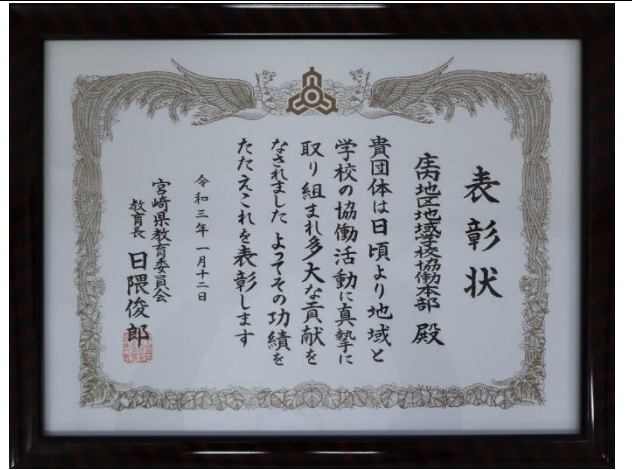 表彰状
庄内地区地域学校協働本部 殿
貴団体は日頃より地域と
学校の協働活動に真摯に
取り組まれ多大な貢献を
なされました よってその功績を
たたえこれを表彰します
令和三年一月十二日
宮崎県教育委員会
教育長 日隈俊郎